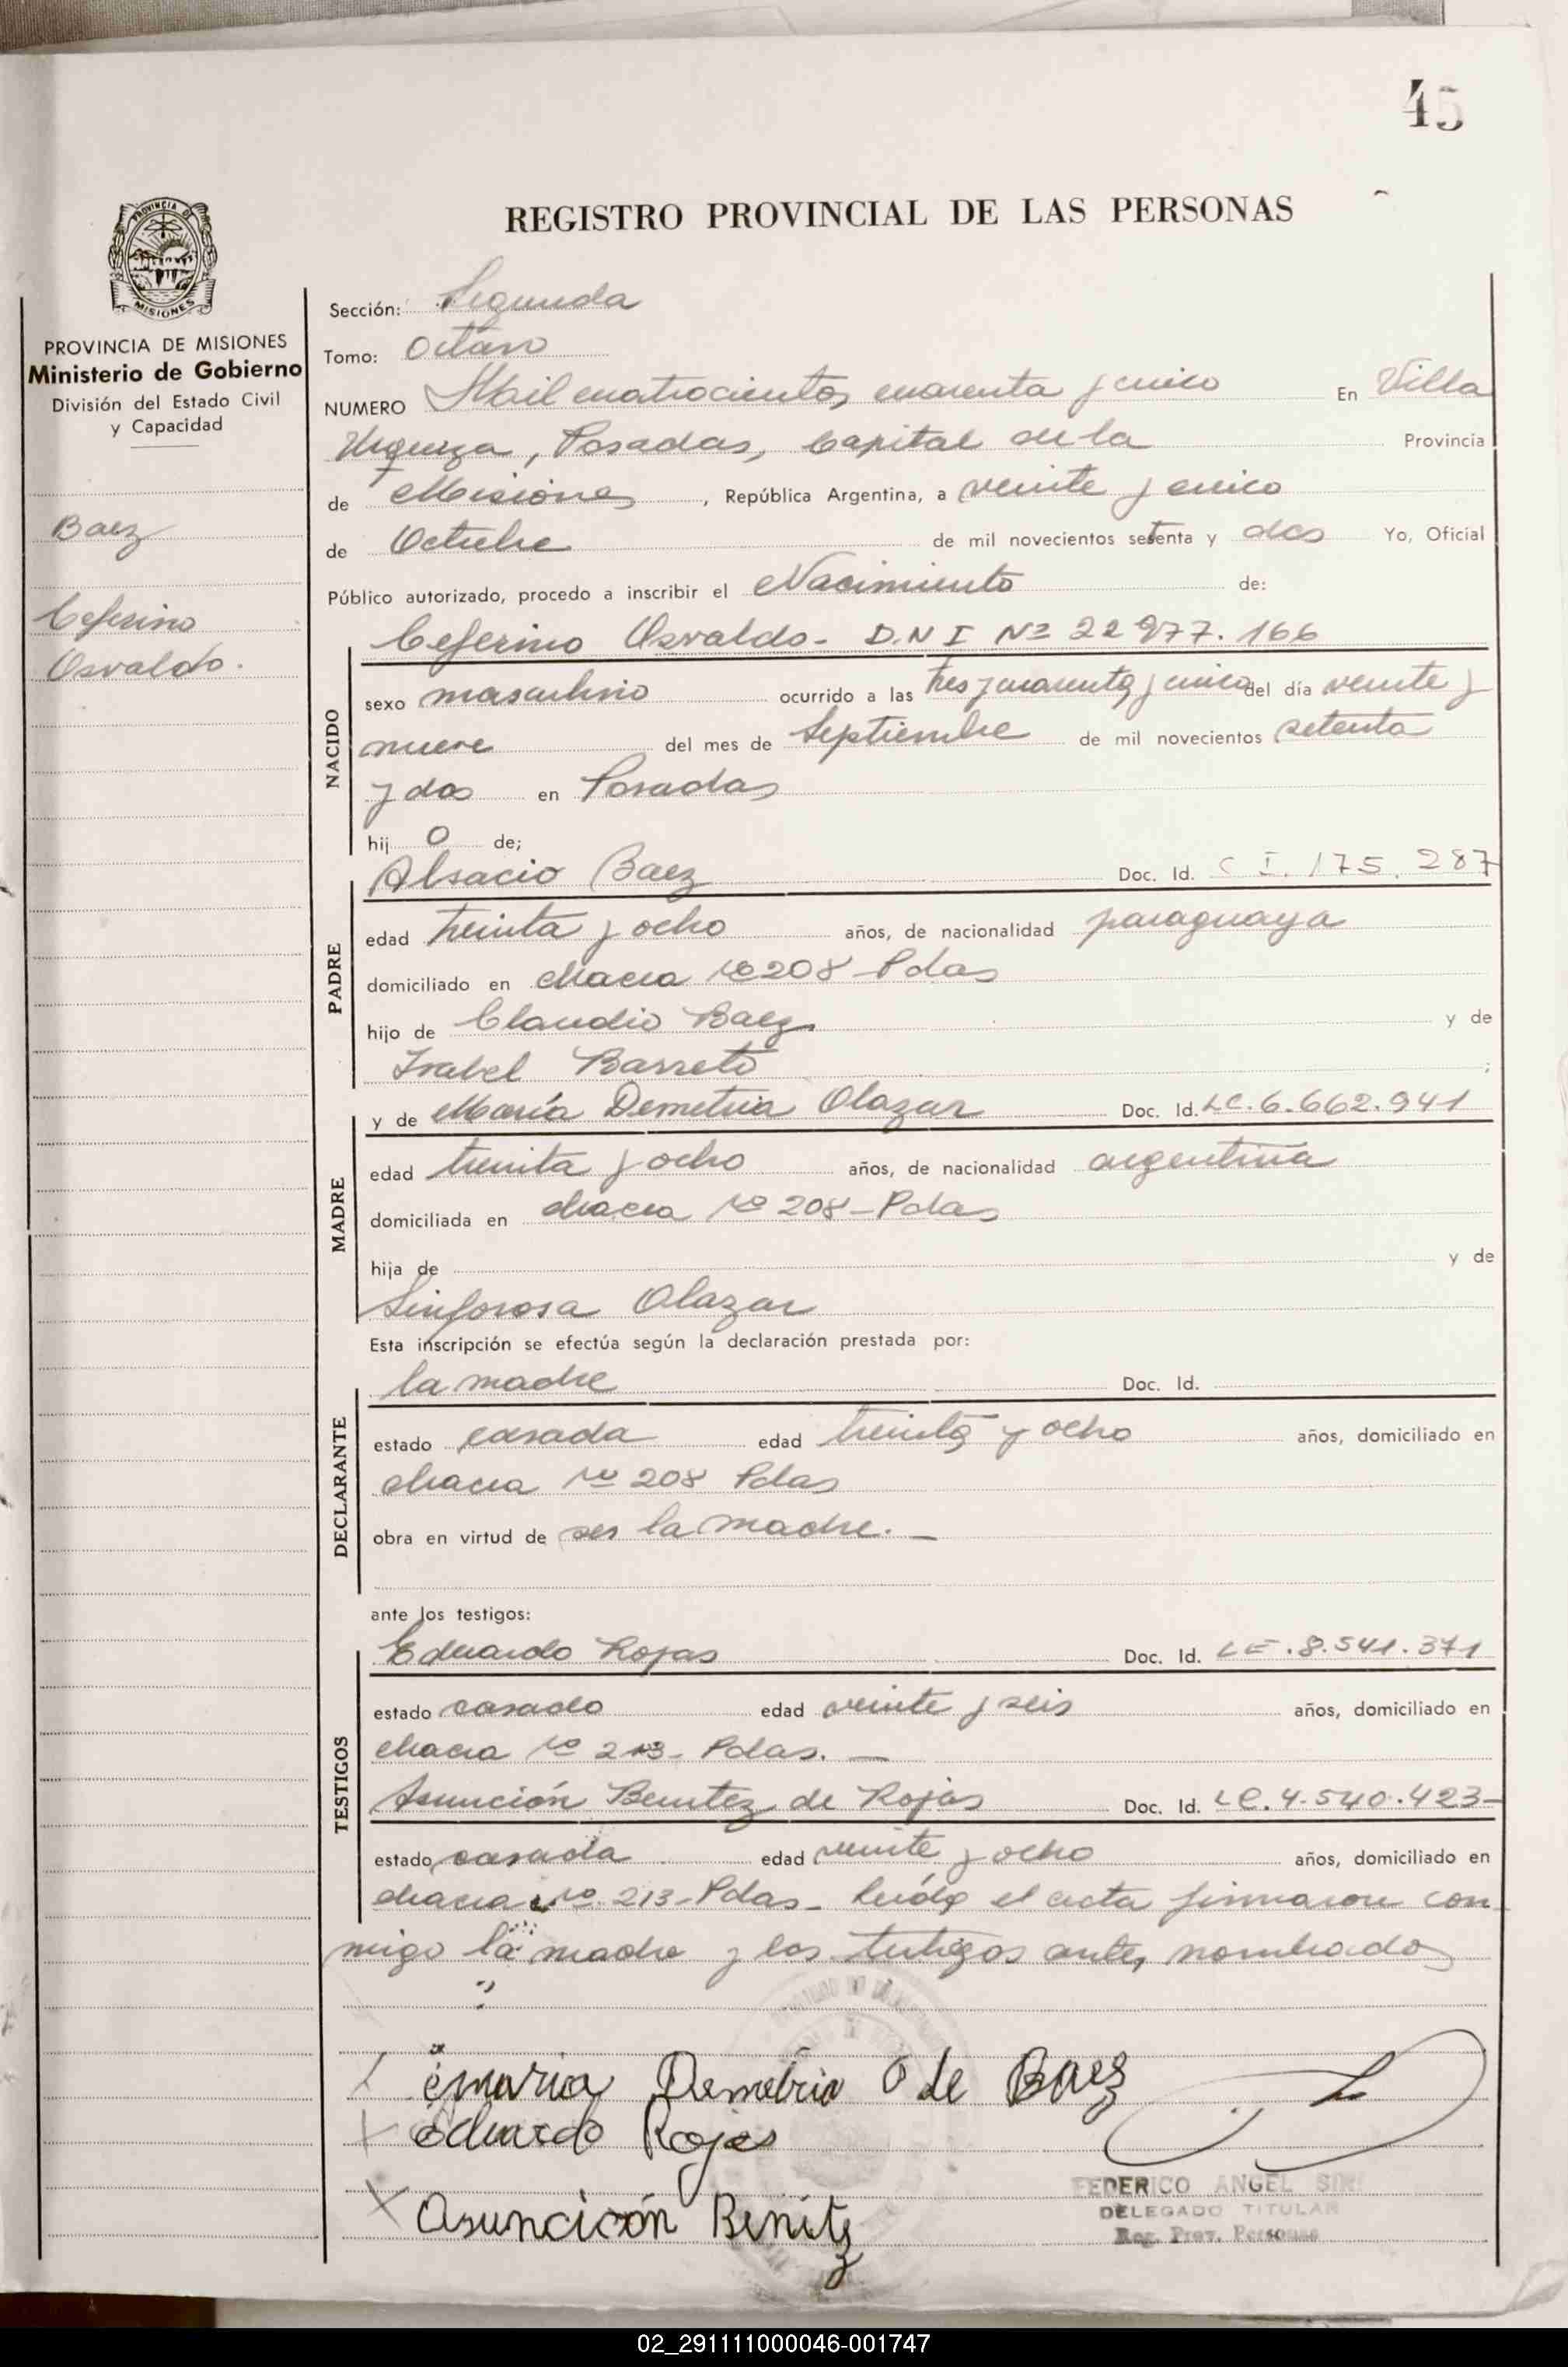 45
REGISTRO PROVINCIAL DE LAS PERSONAS
PROVINCIA DE MISIONES
PROVINCIA DE MISIONES
Ministerio de Gobierno
División del Estado Civil
y Capacidad
Baez
Ceferino
Osvaldo.
Sección: Segunda
Tomo: Octavo
NUMERO Mil cuatrocientos cuarenta y cinco En Villa
Urquiza, Posadas, Capital de la Provincia
de Misiones, República Argentina, a veinte y cinco
de Octubre de mil novecientos setenta y dos Yo, Oficial
Público autorizado, procedo a inscribir el Nacimiento de:
Ceferino Osvaldo - D.N I Nº 22 977. 166
NACIDO
sexo masculino ocurrido a las tres y cuarenta y cinco del día veinte y
nueve del mes de Septiembre de mil novecientos setenta
y dos en Posadas
hij o de;
Alsacio Baez Doc. Id. C I. 175. 287
PADRE
edad treinta y ocho años, de nacionalidad paraguaya
domiciliado en chacra Nº 208 - Pdas
hijo de Claudio Baez y de
Isabel Barreto ;
y de María Demetria Olazar Doc. Id. LC. 6.662.941
MADRE
edad treinta y ocho años, de nacionalidad argentina
domiciliada en chacra Nº 208 - Pdas
hija de y de
Sinforosa Olazar
Esta inscripción se efectúa según la declaración prestada por:
la madre Doc. Id.
DECLARANTE
estado casada edad treinta y ocho años, domiciliado en
chacra Nº 208 Pdas
obra en virtud de ser la madre. —
ante los testigos:
Eduardo Rojas Doc. Id. LE. 8.541.371
TESTIGOS
estado casado edad veinte y seis años, domiciliado en
chacra Nº 213 - Pdas. —
Asunción Benitez de Rojas Doc. Id. LC. 4.540.423-
estado casada edad veinte y ocho años, domiciliado en
chacra Nº 213 - Pdas - Leída el acta firmaron con
migo la madre y los testigos antes nombrados
maria Demetria O de Baez
Eduardo Rojas
Asuncicón Benitz
FEDERICO ANGEL
DELEGADO TITULAR
Reg. Prov. Personas
02_291111000046-001747